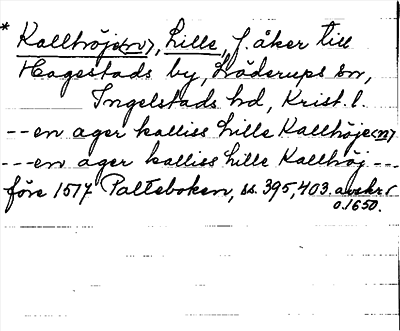 * Kallhöje(n), Lille, f. åker till
Hagestads by, Löderups sn,
Ingelstads hd, Krist. l.
--en ager kalliss Lille Kallhöje(n)
---en ager kalliss Lille Kallhöj---
före 1517 Palteboken, ss. 395, 403. avskr.
o. 1650.